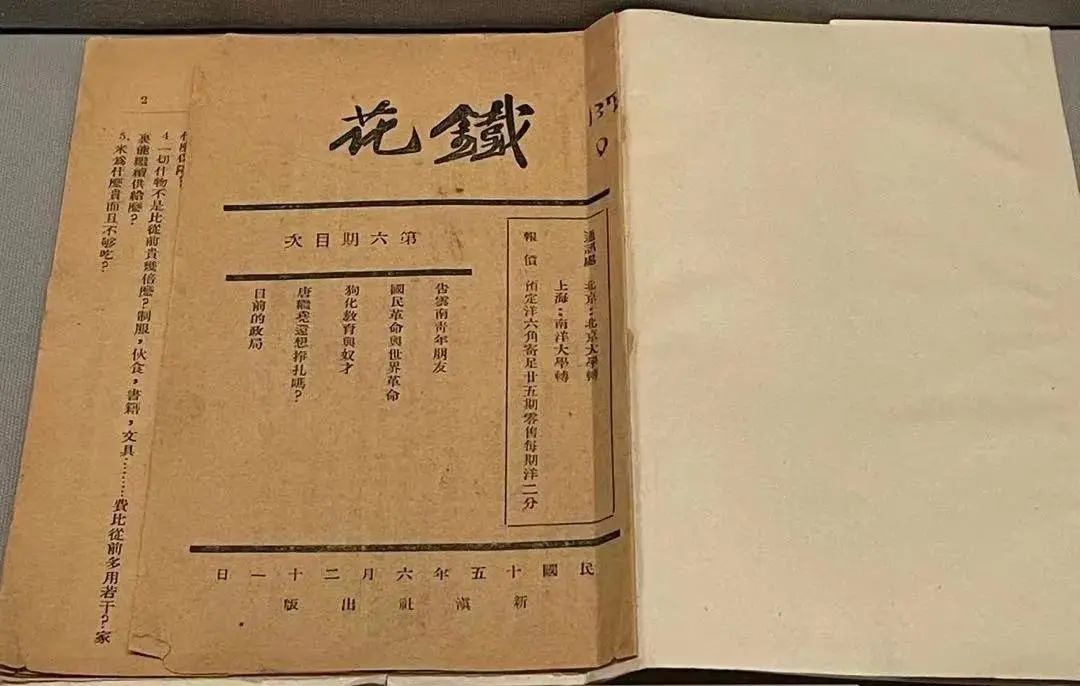 鐵花
137
0
第六期目次
告雲南青年朋友
國民革命與世界革命
狗化教育與奴才
唐繼堯還想掙扎嗎？
目前的政局
通訊處
北京：北京大學轉
上海：南洋大學轉
報價 預定洋六角寄足廿五期零售每期洋二分
民國十五年六月二十一日
新滇社出版
2
4. 一切什物不是比從前貴幾倍麽？制服，伙食，書籍，文具………費比從前多用若干？家
裏能繼續供給麽？
5. 米爲什麽貴而且不够吃？